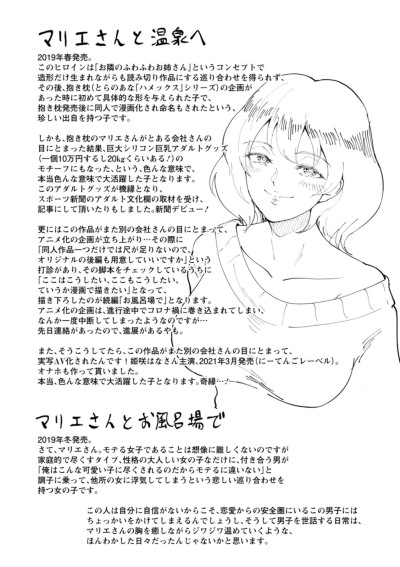 マリエさんと温泉へ
2019年春発売。
このヒロインは「お隣のふわふわお姉さん」というコンセプトで
造形だけ生まれながらも読み切り作品にする巡り合わせを得られず、
その後、抱き枕(とらのあな「ハメックス」シリーズ)の企画が
あった時に初めて具体的な形を与えられた子で、
抱き枕発売後に同人で漫画化され命名もされたという、
珍しい出自を持つ子です。
しかも、抱き枕のマリエさんがとある会社さんの
目にとまった結果、巨大シリコン巨乳アダルトグッズ
(一個10万円するし20kgくらいある!)の
モチーフにもなった、という、色んな意味で、
本当色んな意味で大活躍した子となります。
このアダルトグッズが機縁となり、
スポーツ新聞のアダルト文化欄の取材を受け、
記事にして頂いたりもしました。新聞デビュー!
更にはこの作品がまた別の会社さんの目にとまって、
アニメ化の企画が立ち上がり…その際に
「同人作品一つだけでは尺が足りないので、
オリジナルの後編も用意していいですか」という
打診があり、その脚本をチェックしているうちに
「ここはこうしたい、ここもこうしたい、
ていうか漫画で描きたい」となって、
描き下ろしたのが続編「お風呂場で」となります。
アニメ化の企画は、進行途中でコロナ禍に巻き込まれてしまい、
なんか一度中断してしまったようなのですが…
先日連絡があったので、進展があるやも。
また、そうこうしてたら、この作品がまた別の会社さんの目にとまって、
実写AV化されたんです!姫咲はなさん主演、2021年3月発売(にーてんごレーベル)。
オナホも作って貰いました。
本当、色んな意味で大活躍した子です。奇縁…!
マリエさんとお風呂場で
2019年冬発売。
さて、マリエさん。モテる女子であることは想像に難しくないのですが
家庭的で尽くすタイプ、性格の大人しい女の子なだけに、付き合う男が
「俺はこんな可愛い子に尽くされるのだからモテるに違いない」と
調子に乗って、他所の女に浮気してしまうという悲しい巡り合わせを
持つ女の子です。
この人は自分に自信がないからこそ、恋愛からの安全圏にいるこの男子には
ちょっかいをかけてしまえるんでしょうし、そうして男子を世話する日常は、
マリエさんの胸を癒しながらジワジワ温めていくような、
ほんわかした日々だったんじゃないかと思います。